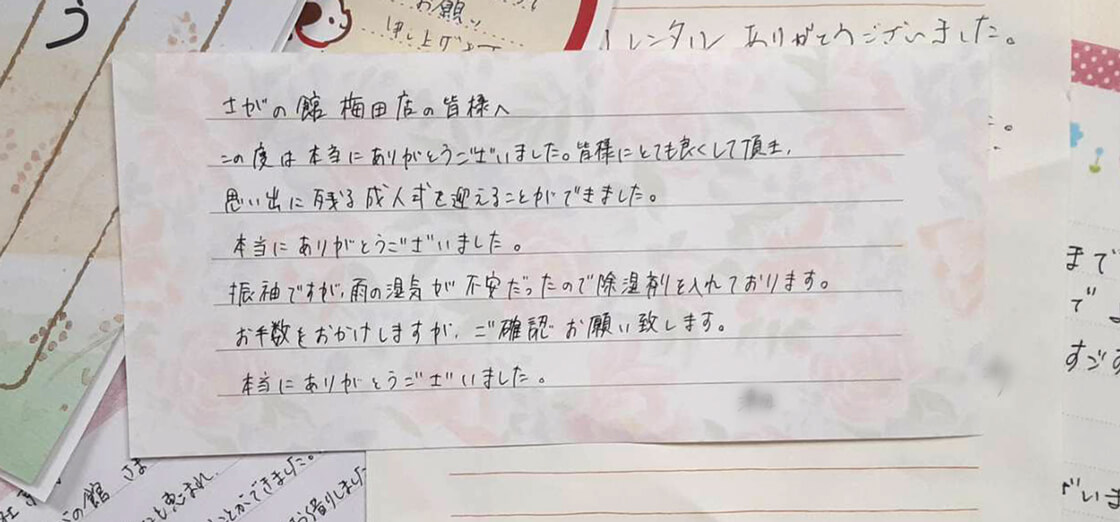 う
お願い
申し上げます
レンタル ありがとうございました。
さがの館 梅田店の皆様へ
この度は本当にありがとうございました。皆様にとても良くして頂き、
思い出に残る成人式を迎えることができました。
本当にありがとうございました。
振袖ですが、雨の湿気が不安だったので除湿剤を入れております。
お手数をおかけしますが、ご確認お願い致します。
本当にありがとうございました。
まで
で
すご
の館 さま
も恵まれ、
ことができました。
お借りしまし